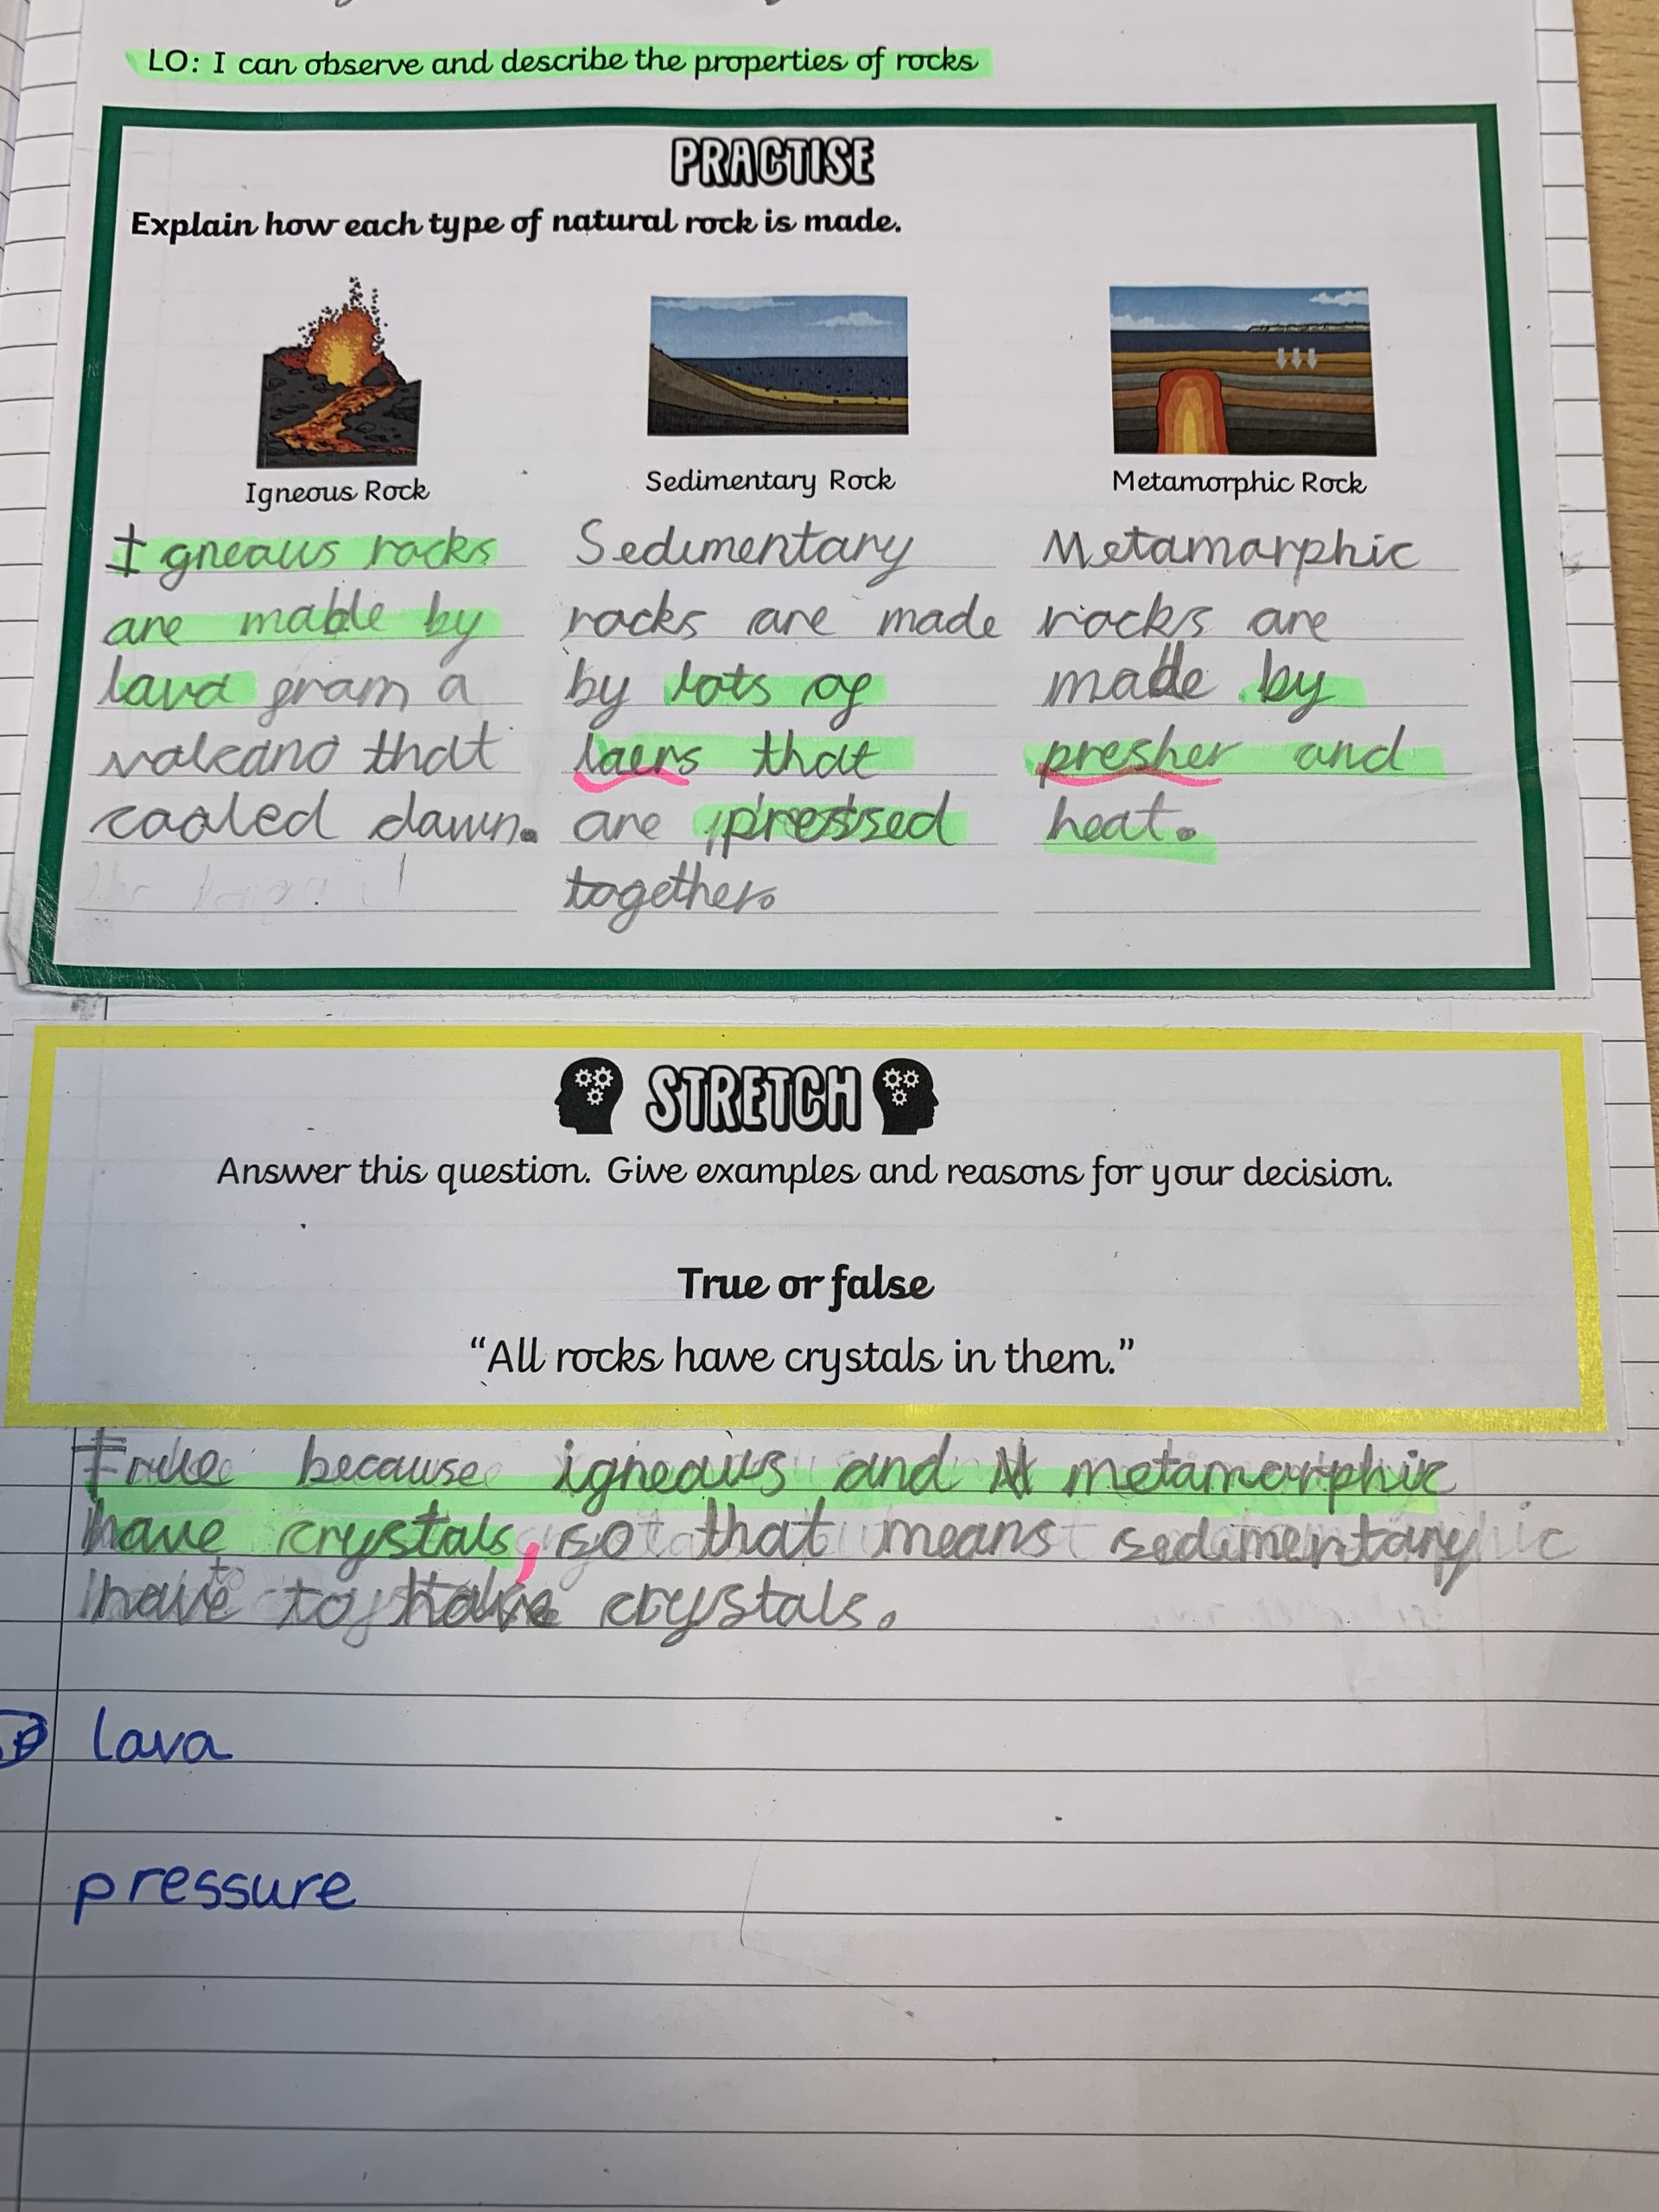 LO: I can observe and describe the properties of rocks
PRACTISE
Explain how each type of natural rock is made.
Igneous Rock
Igneous rocks
are made by
lava from a
volcano that
cooled down.
Sedimentary Rock
Sedimentary
rocks are made
by lots of
laers that
are pressed
together.
Metamorphic Rock
Metamorphic
rocks are
made by
presher and
heat.
STRETCH
Answer this question. Give examples and reasons for your decision.
True or false
“All rocks have crystals in them.”
because igneous and metamorphic
have crystals, so that means sedimentary
have to have crystals.
lava
pressure